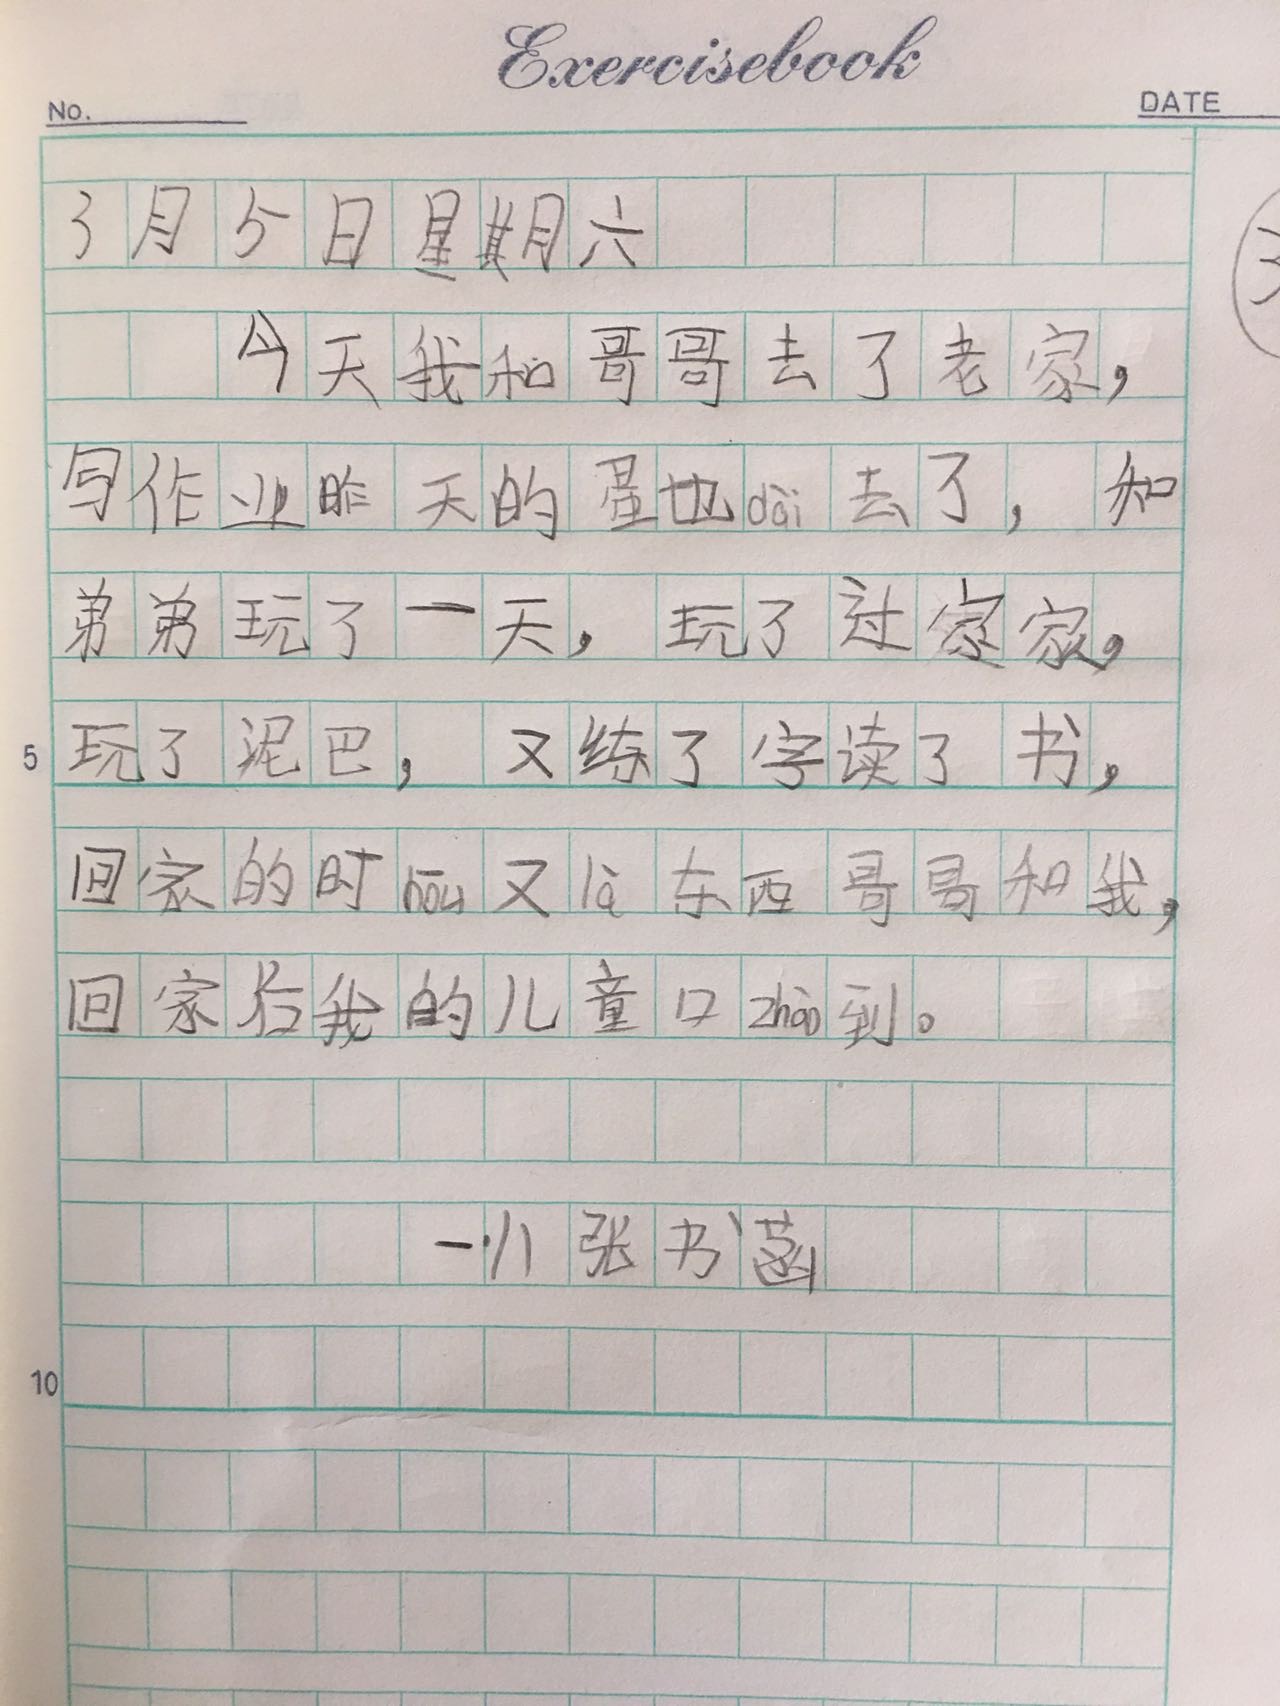 Exercisebook
No.
DATE
3月5日星期六
今天我和哥哥去了老家,
写作业昨天的蛋也dài去了,和
弟弟玩了一天,玩了过家家,
5 玩了泥巴,又练了字读了书,
回家的时hòu又là东西哥哥和我,
回家后我的儿童口zhào到。
一八张书菡
10